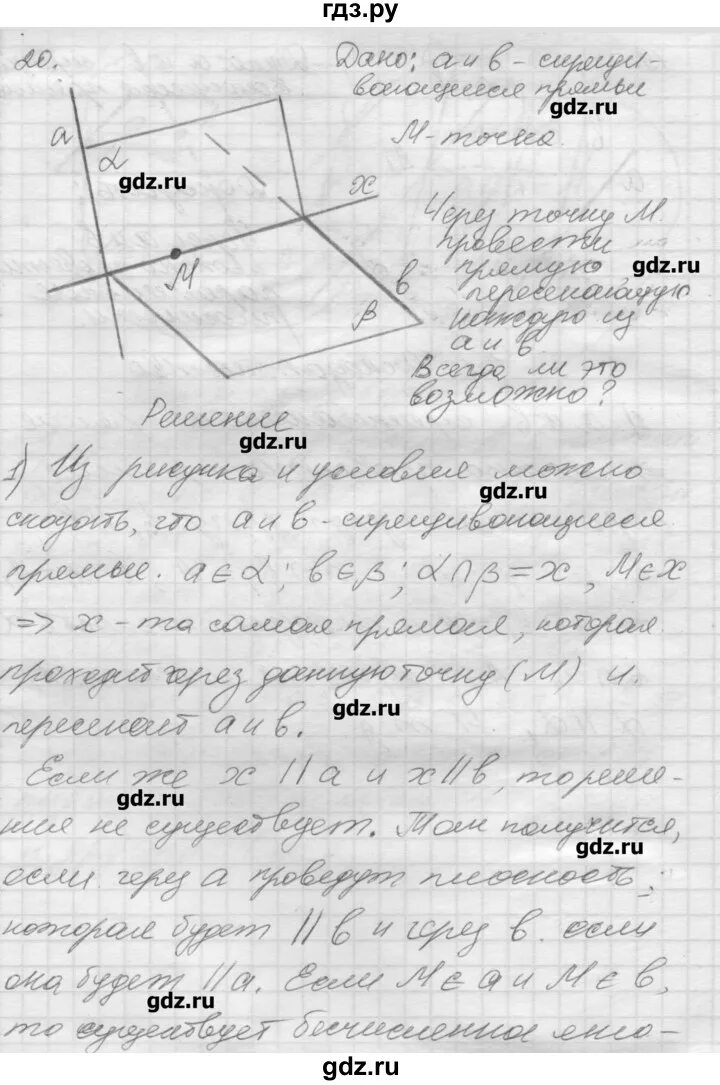 гдз.ру
20.
Дано: a и b - скрещи-
вающиеся прямые
gdz.ru
M - точка.
a
α
gdz.ru
x
M
b
β
Через точку M
провести
gdz.ru
прямую,
пересекающую
каждую из
a и b.
Всегда ли это
возможно?
Решение
gdz.ru
1) Из рисунка и условия можно
gdz.ru
сказать, что a и b - скрещивающиеся
прямые. a ∈ α; b ∈ β; α ∩ β = x, M ∈ x
⇒ x - та самая прямая, которая
проходит через данную точку (M) и
gdz.ru
пересекает a и b.
Если же x || a и x || b, то реше-
gdz.ru
ния не существует. Так получится,
gdz.ru
если через a проведут плоскость,
которая будет || b и через b. если
она будет || a. Если M ∈ a и M ∈ b,
gdz.ru
то существует бесчисленное мно-
gdz.ru